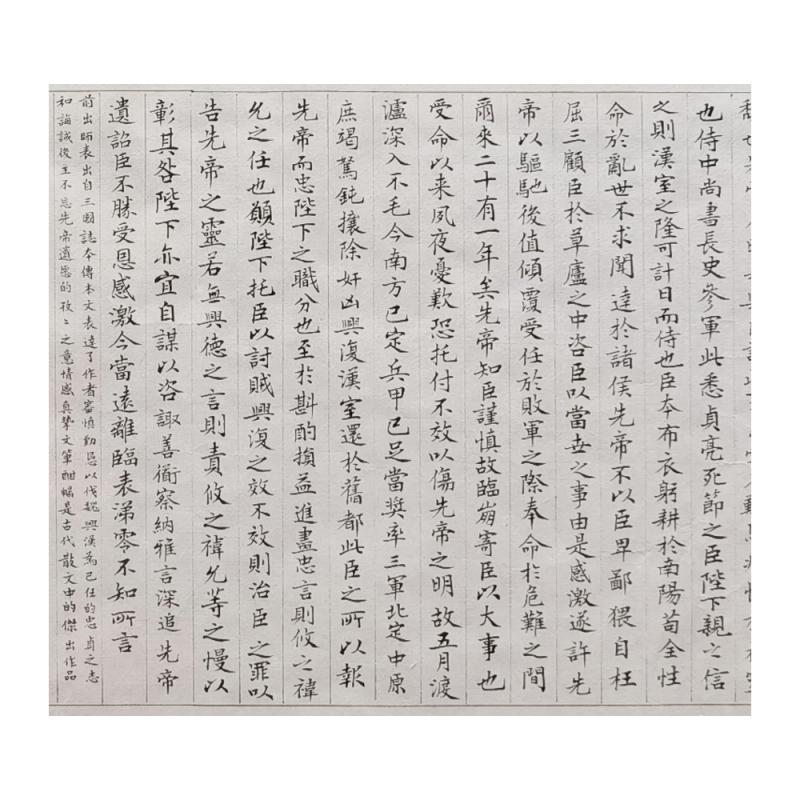 也侍中尚書長史參軍此悉貞亮死節之臣陛下親之信
之則漢室之隆可計日而待也臣本布衣躬耕於南陽苟全性
命於亂世不求聞達於諸侯先帝不以臣卑鄙猥自枉
屈三顧臣於草廬之中咨臣以當世之事由是感激遂許先
帝以驅馳後值傾覆受任於敗軍之際奉命於危難之間
爾來二十有一年矣先帝知臣謹慎故臨崩寄臣以大事也
受命以来夙夜憂歎恐托付不效以傷先帝之明故五月渡
瀘深入不毛今南方已定兵甲已足當奬率三軍北定中原
庶竭駑鈍攘除奸凶興復漢室還於舊都此臣之所以報
先帝而忠陛下之職分也至於斟酌損益進盡忠言則攸之禕
允之任也願陛下托臣以討賊興復之效不效則治臣之罪以
告先帝之靈若無興德之言則責攸之禕允等之慢以
彰其咎陛下亦宜自謀以咨諏善衜察納雅言深追先帝
遺詔臣不勝受恩感激今當遠離臨表涕零不知所言
前出師表出自三國誌本傳本文表達了作者審慎勤懇以伐魏興漢為己任的忠貞之志
和誨誡後主不忘先帝遺愿的孜〻之意情感真摯文筆酣暢是古代散文中的傑出作品